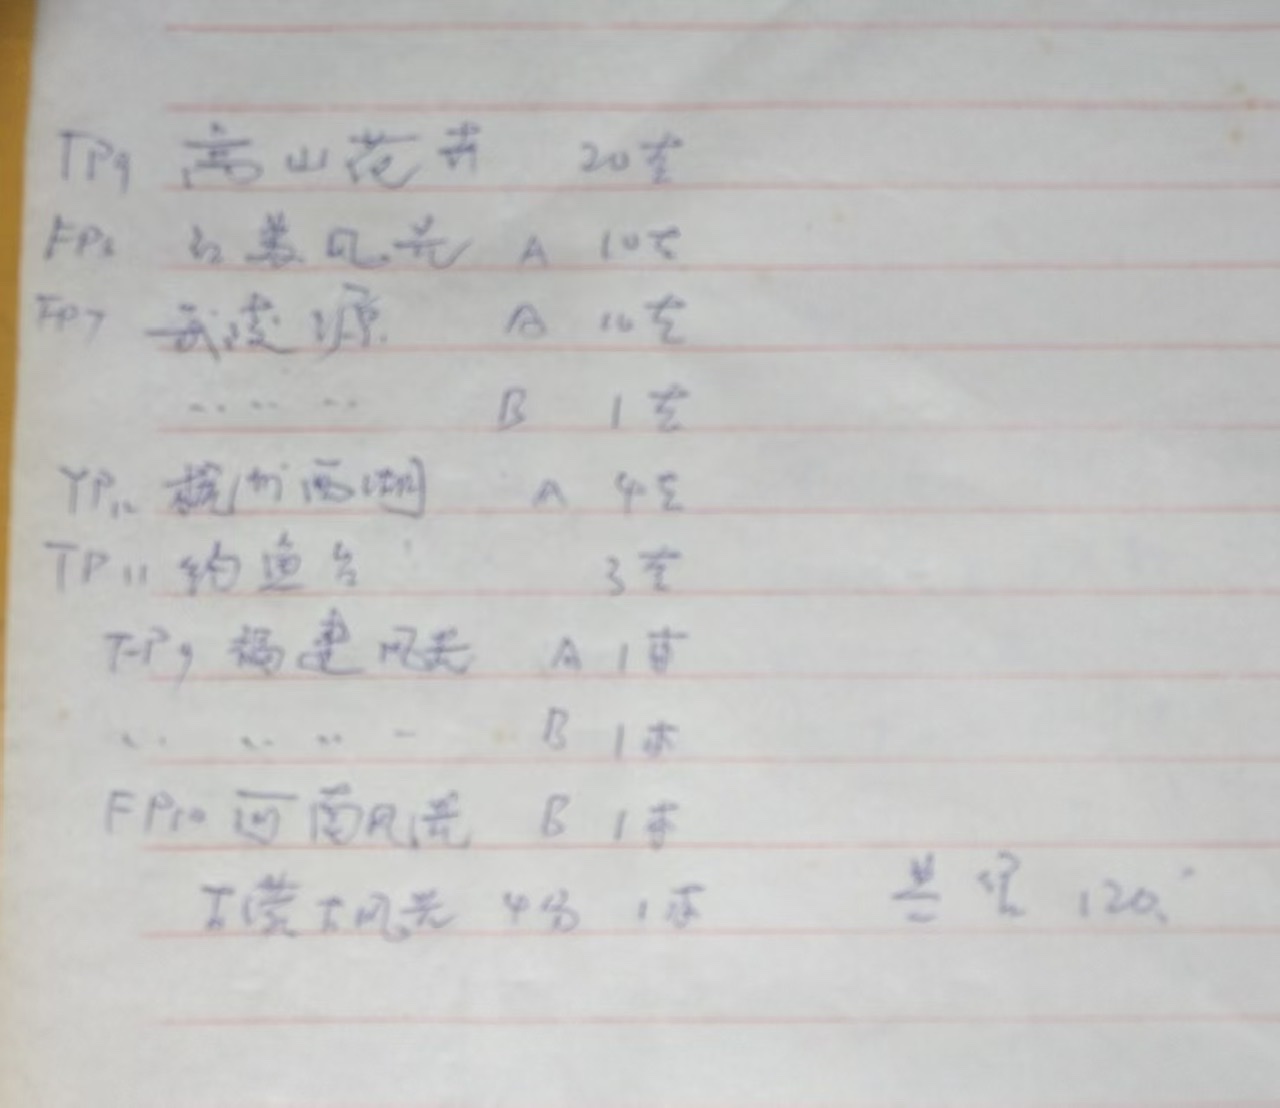 TP9 高山花卉 20套
FP8 台湾风光 A 10套
FP7 武陵源 A 10套
〃 〃 〃 B 1套
YP12 杭州西湖 A 4套
TP11 钓鱼台 3套
TP9 福建风光 A 1本
〃 〃 〃 〃 B 1本
FP10 河南风光 B 1本
古风光 4分 1本
共 120